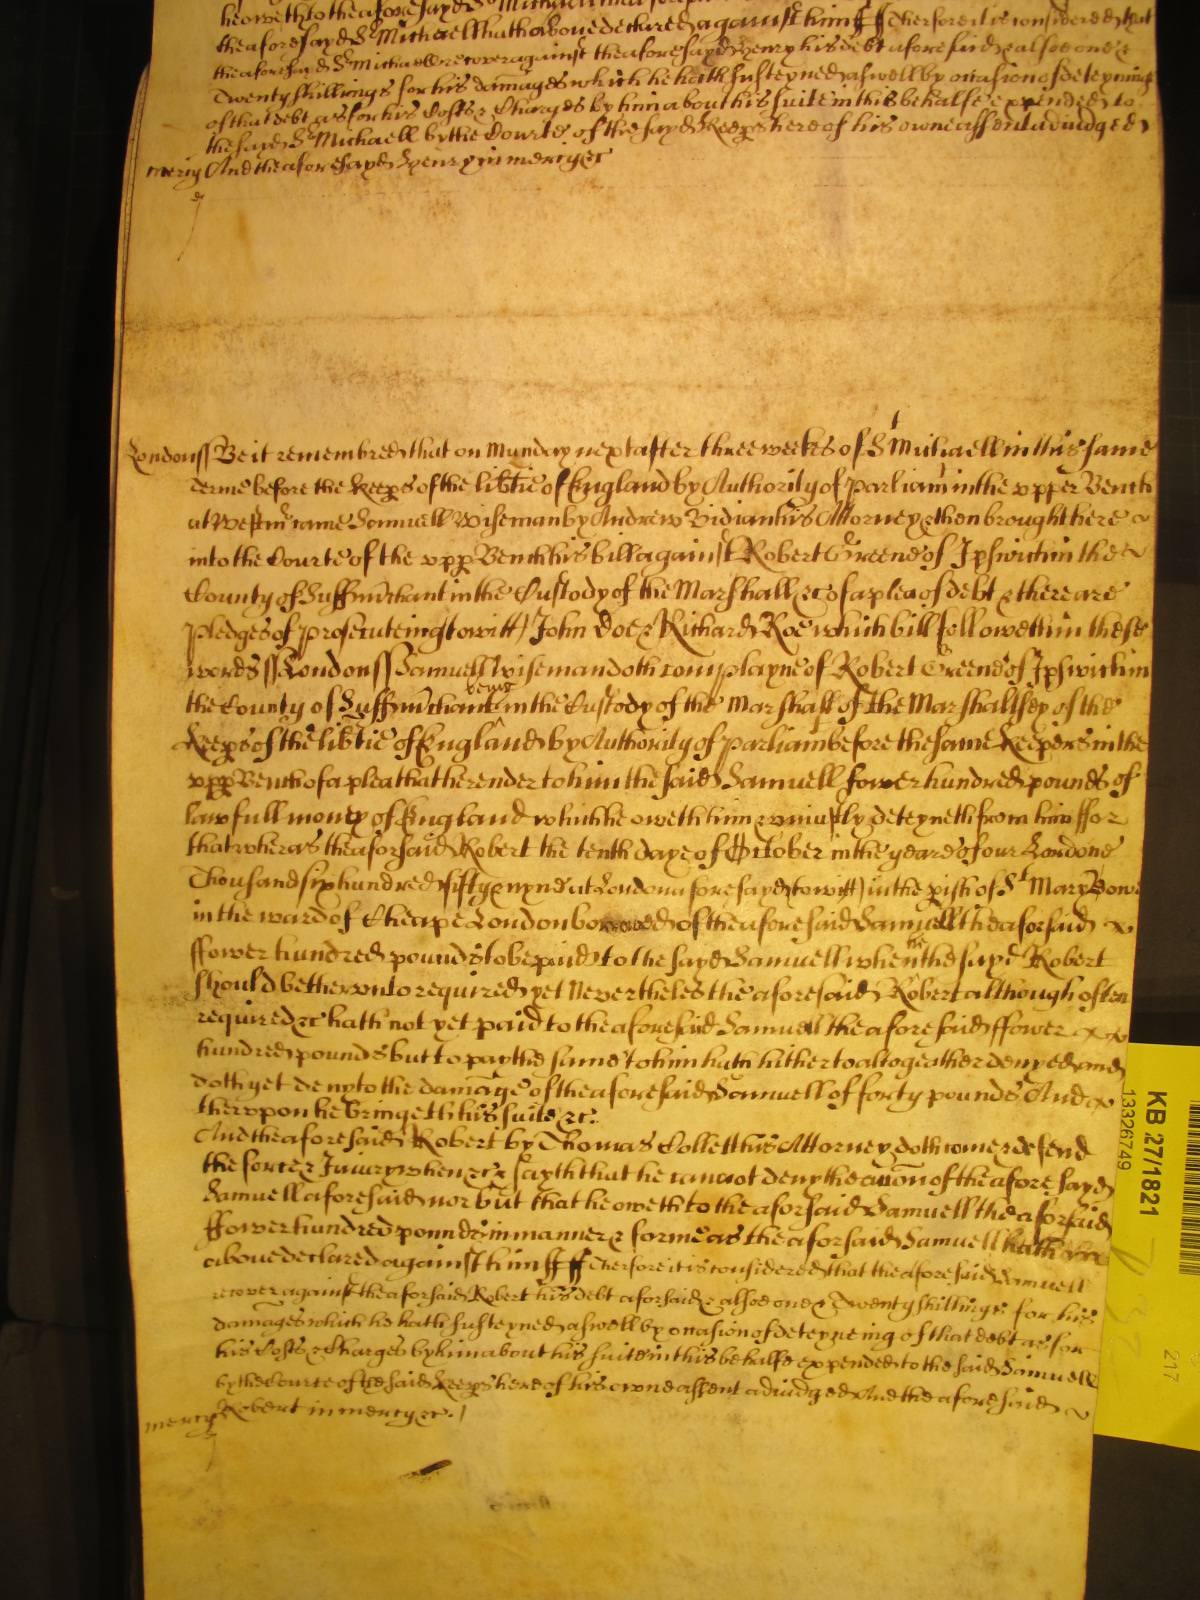 he oweth to the aforesayd Sr Michaell
the aforesayd Sr Michaell hath above declared against him Therfore it is considered that
the aforesayd Sr Michaell recover against the aforesayd Henry his debt aforesaid & alsoe one &
Twenty shillings for his damages which he hath susteyned aswell by occasion of deteyning
of that debt as for his Costs & Charges by him about his suite in this behalfe expended to
the sayd Sr Michaell by the Courte of the sayd Keeps here of his owne assent adiudged
mercy And the aforesayd Henry in mercy &c
London ss Be it remembred that on Munday next after three weekes of St Michaell in this same
Terme before the Keeps of the libtie of England by Authority of Parliamt in the upper Bench
at Westmr came Samuell Wiseman by Andrew Vidian his Attorney & then brought here
into the Courte of the upp Bench his bill against Robert Greene of Ipswich in the
County of Suff mchant in the Custody of the Marshall &c of a plea of debt & there are
Pledges of prosecuteing to witt John Doe & Richard Roe which bill followeth in these
words ss London ss Samuell Wiseman doth complayne of Robert Greene of Ipswich in
the County of Suff mchant being in the Custody of the Marshall of the Marshallsey of the
Keeps of the libtie of England by Authority of Parliamt before the same Keepers in the
upp Bench of a plea that he render to him the said Samuell fower hundred pounds of
lawfull money of England which he oweth him & uniustly deteyneth from him ffor
that wheras the aforsaid Robert the tenth daye of October in the yeare of our Lord one
Thousand six hundred fifty & nyne at London aforesayd to witt in the pish of St Mary Bowe
in the ward of Cheape London borrowed of the aforesaid Samuell the aforsaid
ffower hundred pounds to be paid to the sayd Samuell when the sayd Robert
should be therunto required yet Nevertheles the aforesaid Robert although often
required &c hath not yet paid to the aforesaid Samuell the aforesaid ffower
hundred pounds but to pay the same to him hath hitherto altogeather denyed and
doth yet deny to the damage of the aforesaid Samuell of forty pounds And
therupon he bringeth his suite &c.
And the aforesaid Robert by Thomas Collett his Attorney doth come & defend
the force & Iniury when &c & sayth that he cannot deny the accon of the aforesayd
Samuell aforesaid nor but that he oweth to the aforsaid Samuell the aforsaid
ffower hundred pounds in manner & forme as the aforsaid Samuell hath
above declared against him Therfore it is considered that the aforesaid Samuell
recover against the aforsaid Robert his debt aforsaid & alsoe one & Twenty shillings for his
damages which he hath susteyned aswell by occasion of deteyneing of that debt as for
his Costs & Charges by him about his suite in this behalfe expended to the said Samuell
by the Courte of the said Keeps here of his owne assent adiudged And the aforesaid
mercy Robert in mercy &c.
KB 27/1821
13326749
217